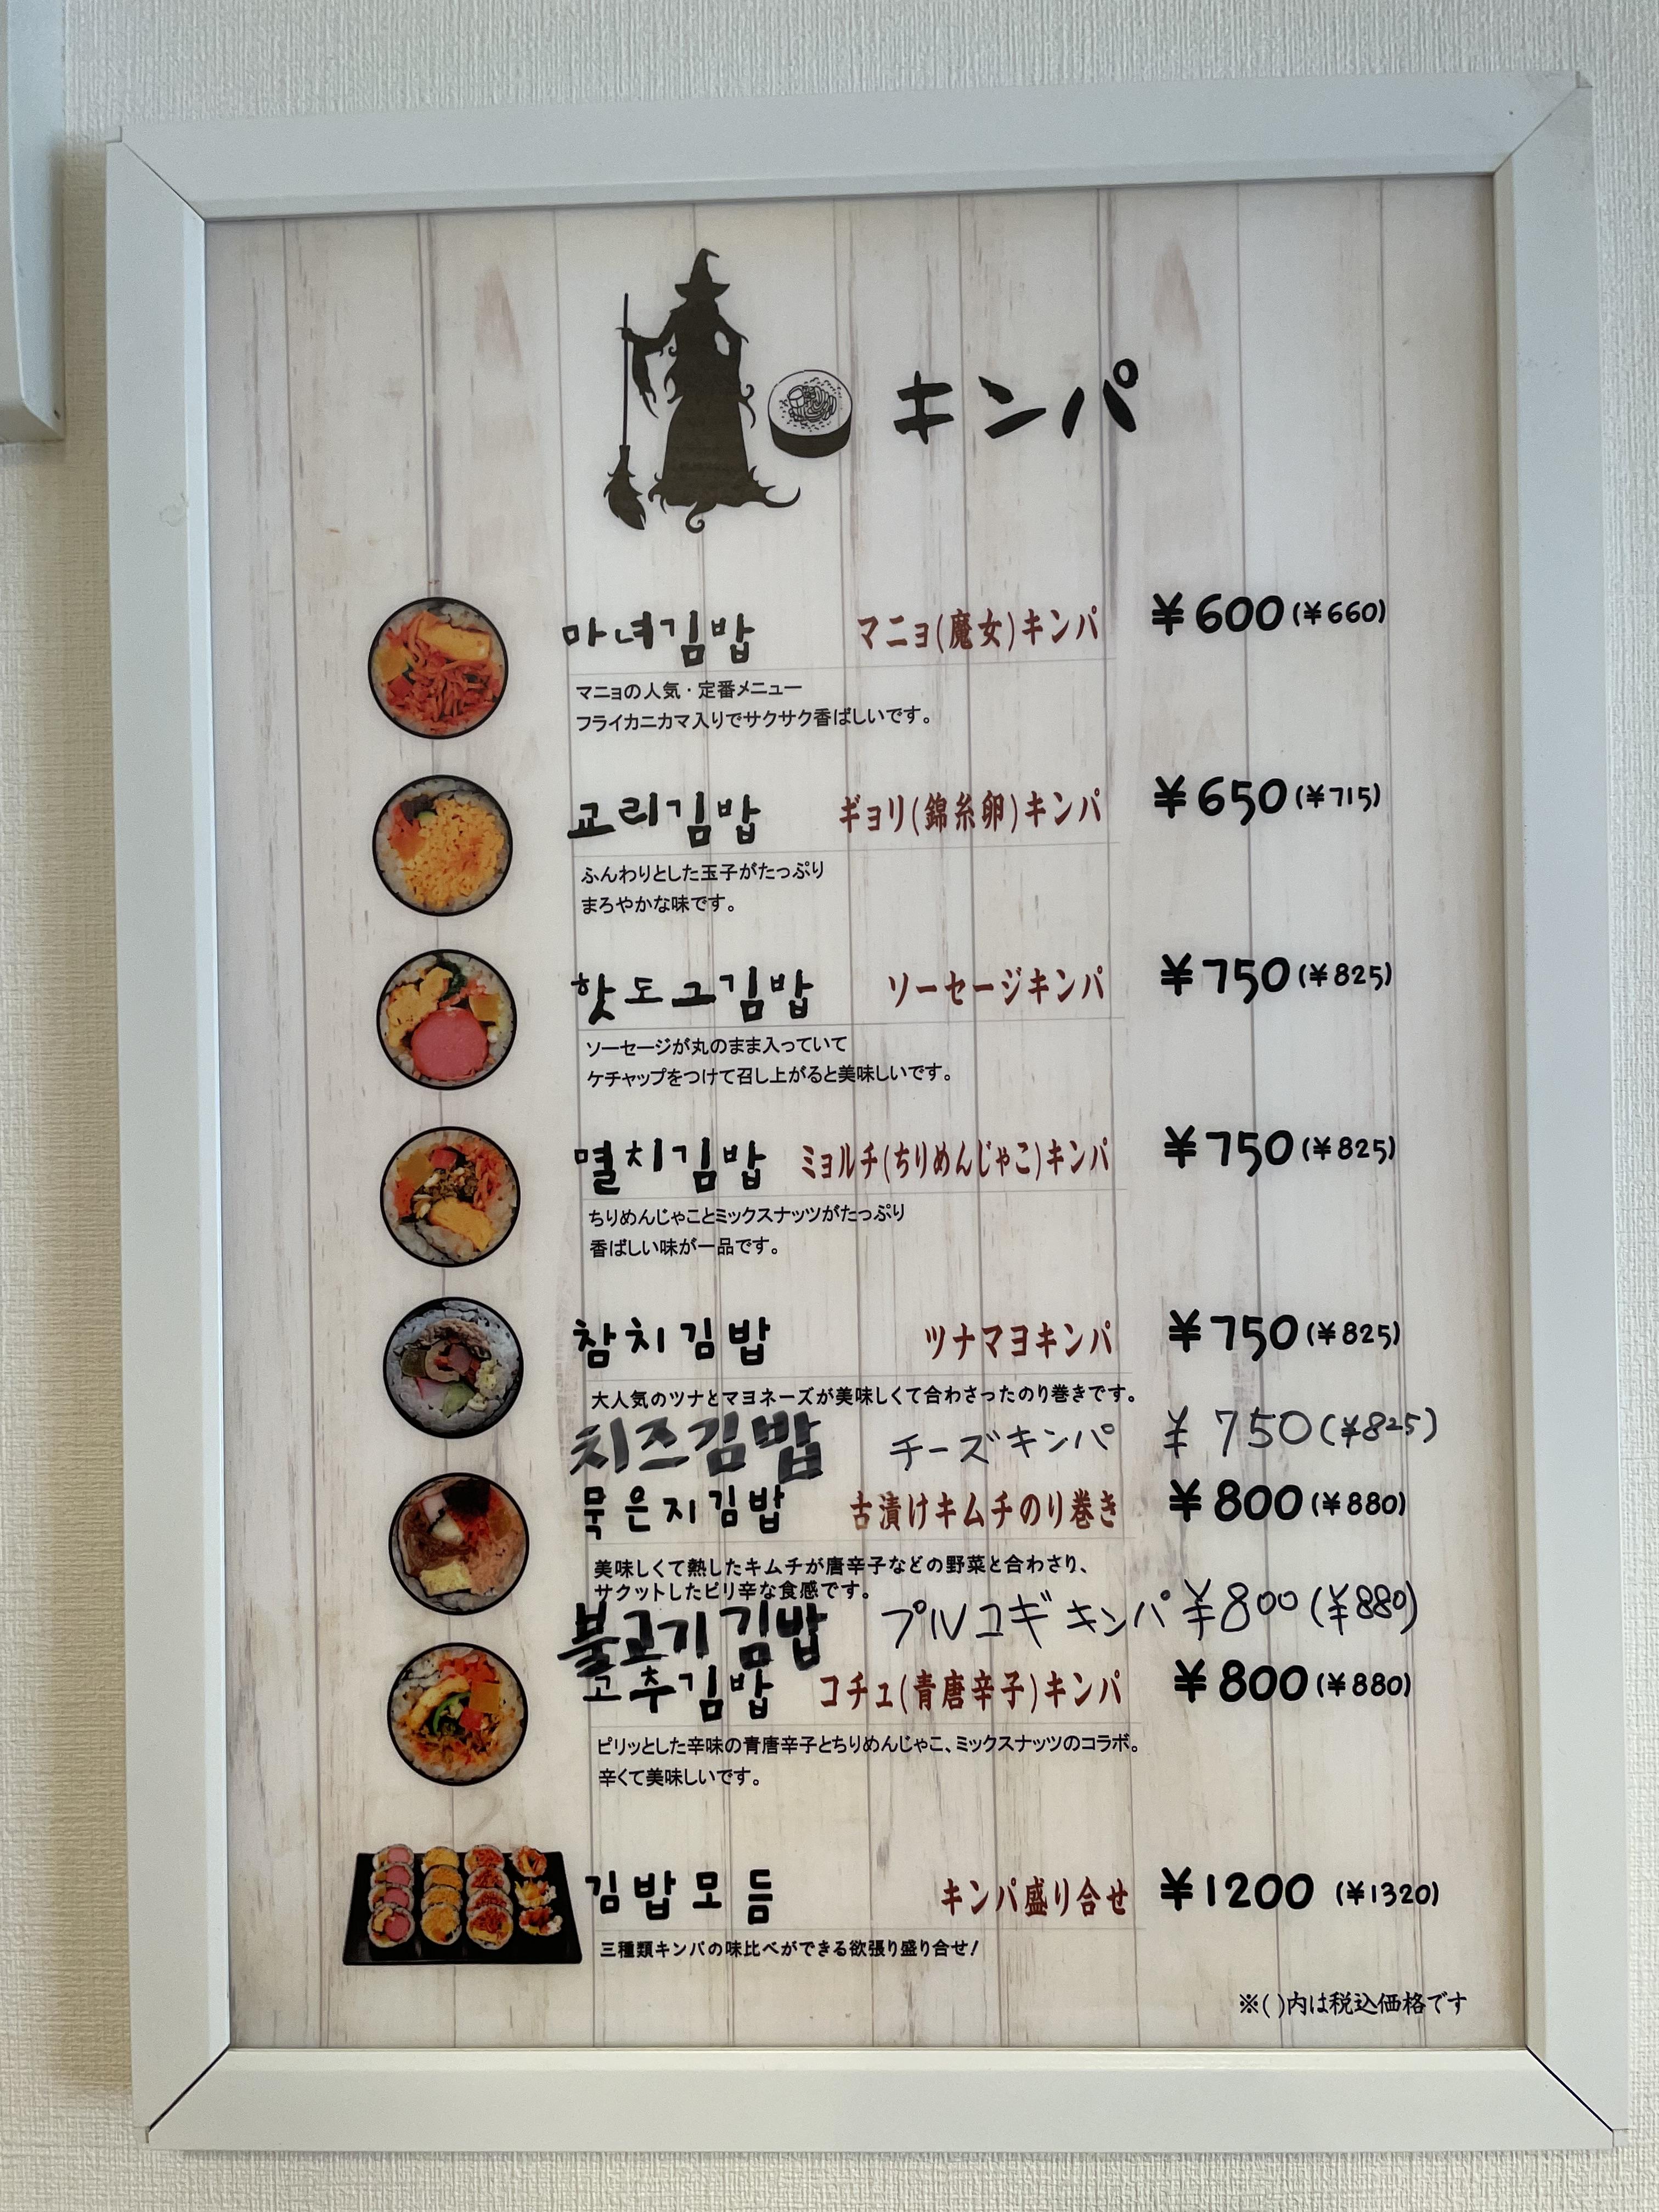 キンパ
마녀김밥 マニョ(魔女)キンパ ¥600(¥660)
マニョの人気・定番メニュー
フライカニカマ入りでサクサク香ばしいです。
교리김밥 ギョリ(錦糸卵)キンパ ¥650(¥715)
ふんわりとした玉子がたっぷり
まろやかな味です。
핫도그김밥 ソーセージキンパ ¥750(¥825)
ソーセージが丸のまま入っていて
ケチャップをつけて召し上がると美味しいです。
멸치김밥 ミョルチ(ちりめんじゃこ)キンパ ¥750(¥825)
ちりめんじゃことミックスナッツがたっぷり
香ばしい味が一品です。
참치김밥 ツナマヨキンパ ¥750(¥825)
大人気のツナとマヨネーズが美味しくて合わさったのり巻きです。
치즈김밥 チーズキンパ ¥750(¥825)
묵은지김밥 古漬けキムチのり巻き ¥800(¥880)
美味しくて熟したキムチが唐辛子などの野菜と合わさり、
サクットしたピリ辛な食感です。
불고기김밥 プルコギキンパ ¥800(¥880)
고추김밥 コチュ(青唐辛子)キンパ ¥800(¥880)
ピリッとした辛味の青唐辛子とちりめんじゃこ、ミックスナッツのコラボ。
辛くて美味しいです。
김밥모듬 キンパ盛り合せ ¥1200 (¥1320)
三種類キンパの味比べができる欲張り盛り合せ!
※( )内は税込価格です